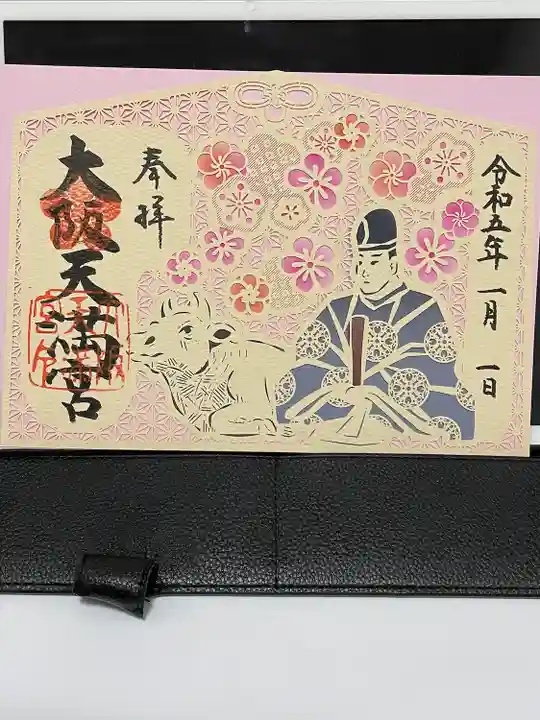 令和五年 一月 一日
奉拝
大阪天満宮